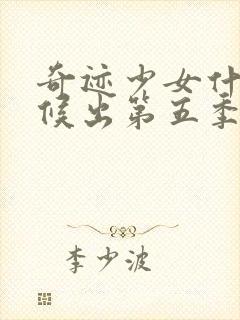 奇迹少女什
候出第五季
李少波